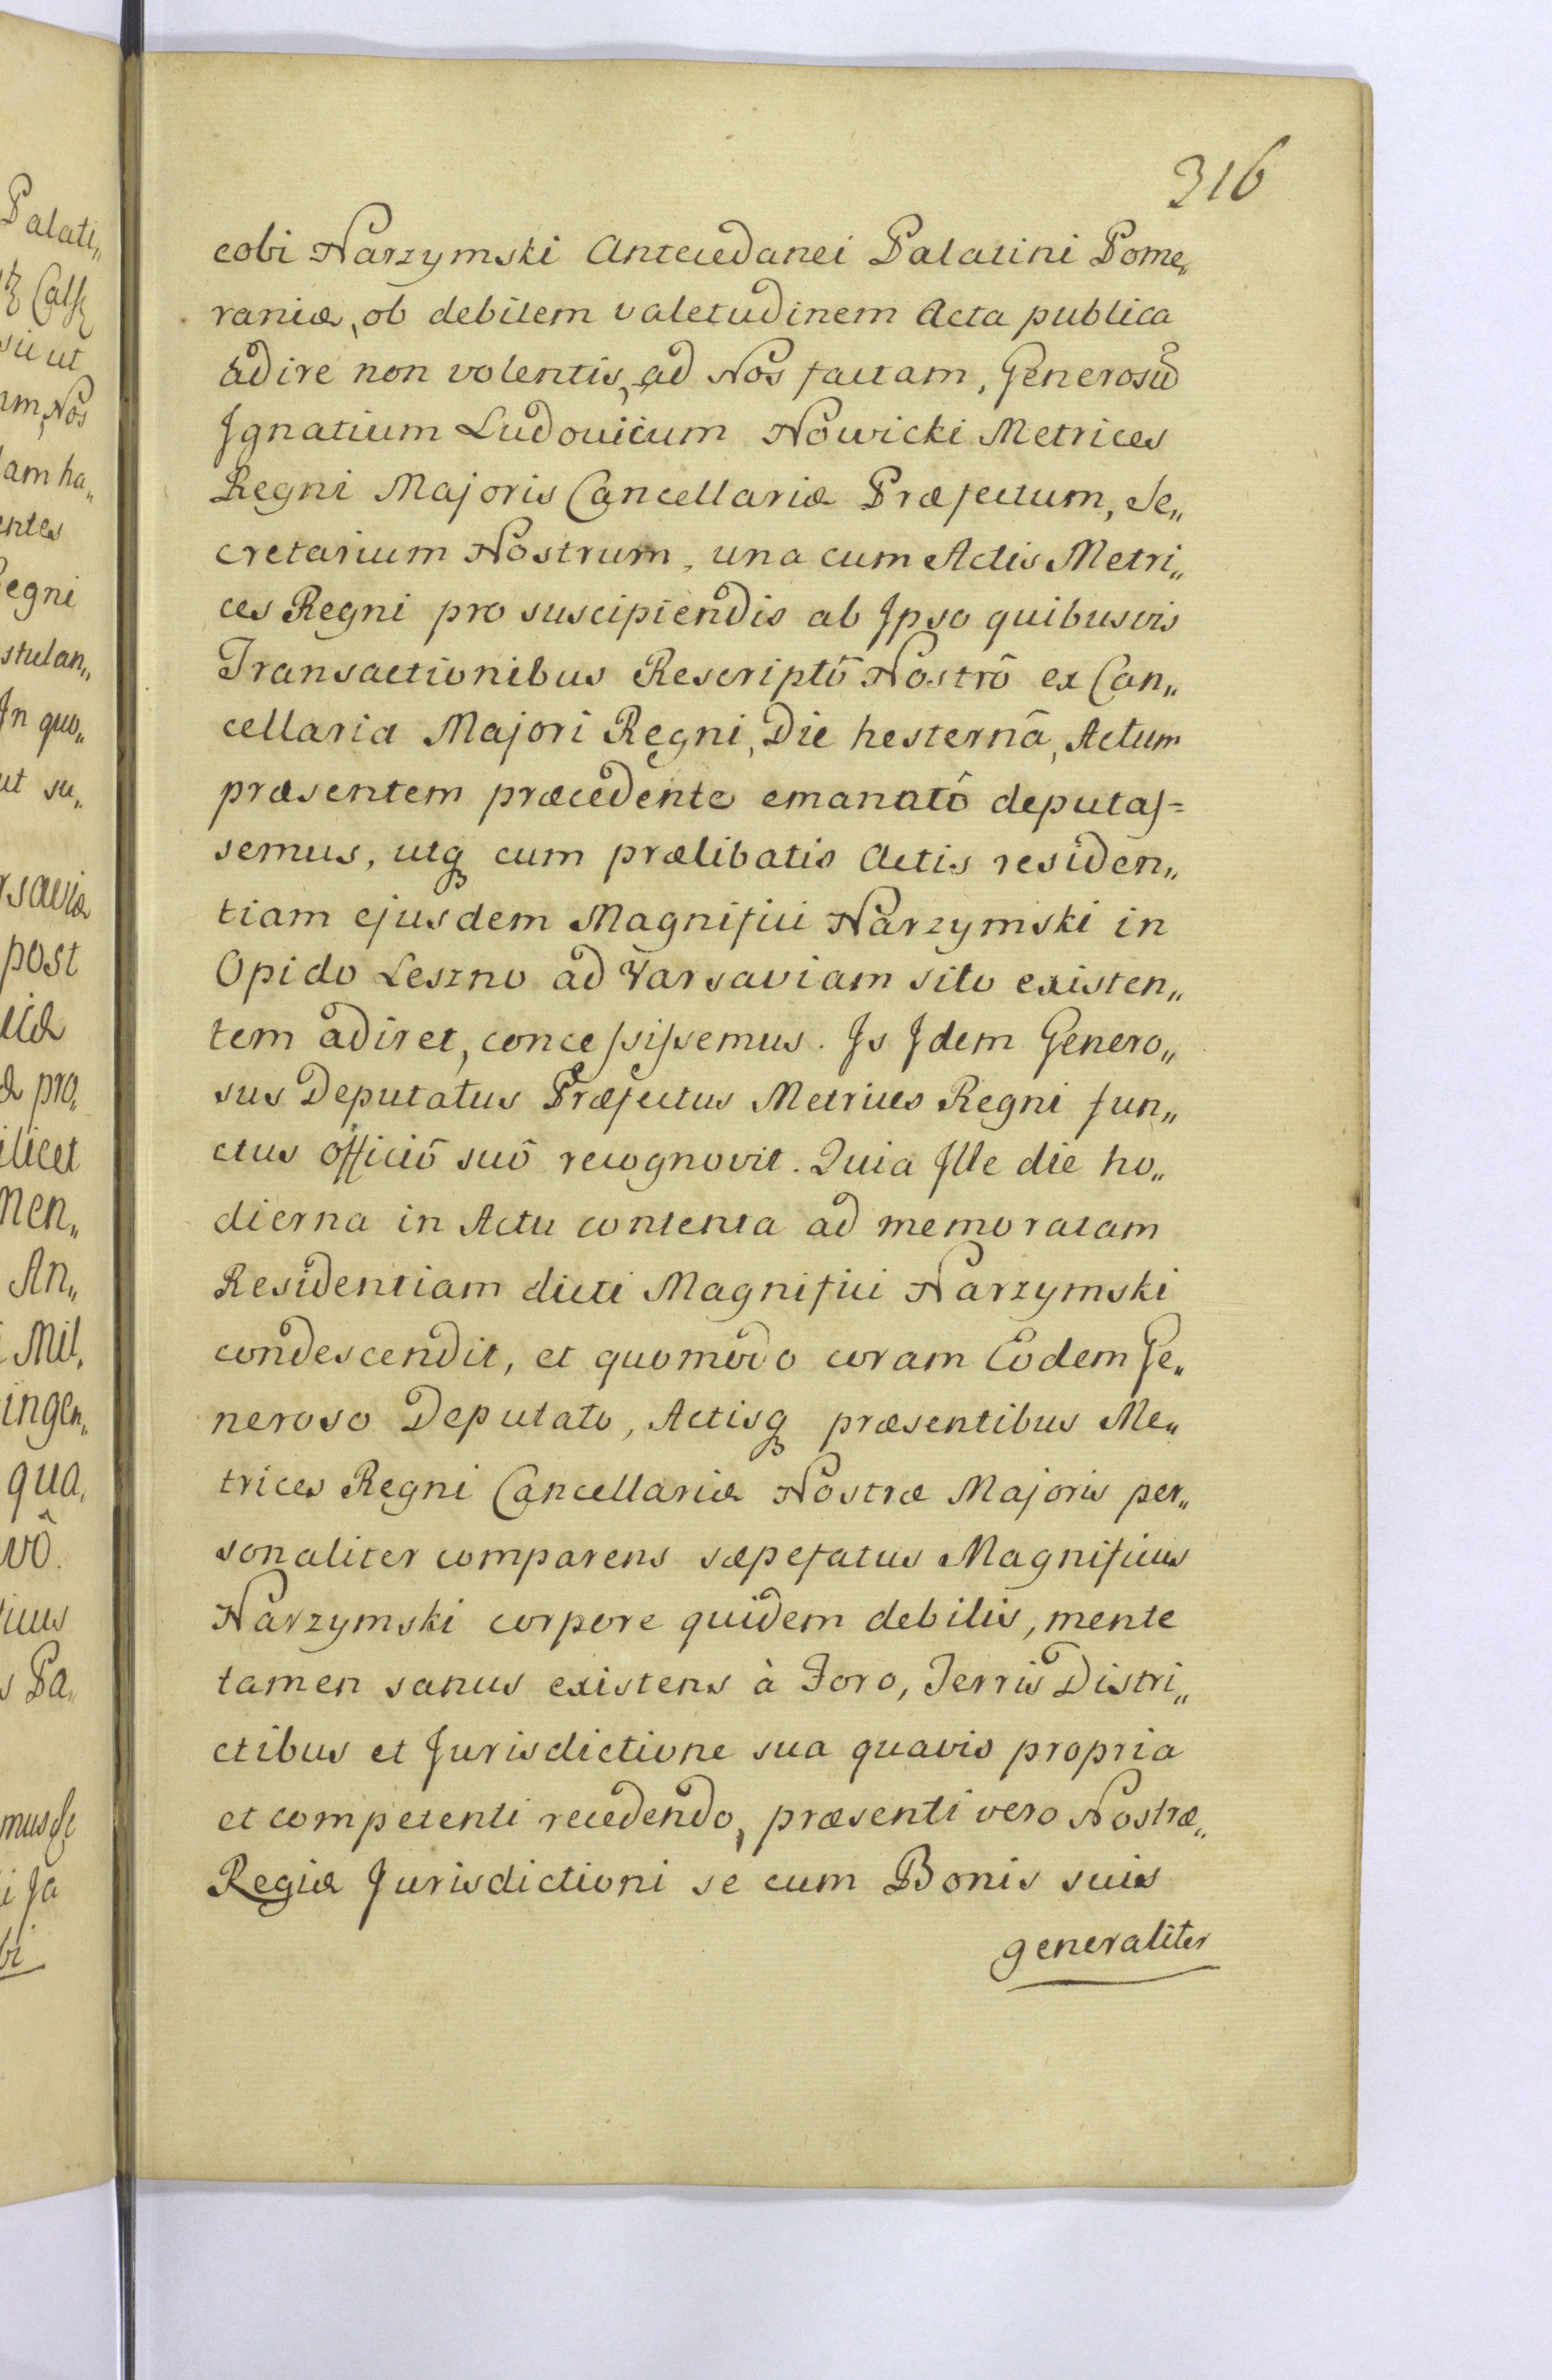 316
cobi Narzymski Antecedanei Palatini Pome„
raniæ, ob debilem valetudinem Acta publica
adire non volentis, ad Nos factam, Generosũ
Ignatium Ludovicum Nowicki Metrices
Regni Majoris Cancellariæ Præfectum, Se„
cretarium Nostrum, una cum Actis Metri„
ces Regni pro suscipiendis ab Ipso quibusvis
Transactionibus Rescriptô Nostrô ex Can„
cellaria Majori Regni, Die hesternâ, Actum
præsentem præcedente emanatô deputas=
semus, utq cum prælibatis Actis residen„
tiam ejusdem Magnifici Narzymski in
Opido Leszno ad Varsaviam sito existen„
tem adiret, concessissemus. Is Idem Genero„
sus Deputatus Præfectus Metrices Regni fun„
ctus officiô suô recognovit. Quia Ille die ho„
dierna in Actu contenta ad memoratam
Residentiam dicti Magnifici Narzymski
condescendit, et quomodo coram Eodem Ge„
neroso Deputato, Actisq præsentibus Me„
trices Regni Cancellariæ Nostræ Majoris per„
sonaliter comparens sæpefatus Magnificus
Narzymski corpore quidem debilis, mente
tamen sanus existens à Foro, Terris Distri„
ctibus et Jurisdictione sua quavis propria
et competenti recedendo, præsenti vero Nostræ„
Regiæ Jurisdictioni se cum Bonis suis
generaliter